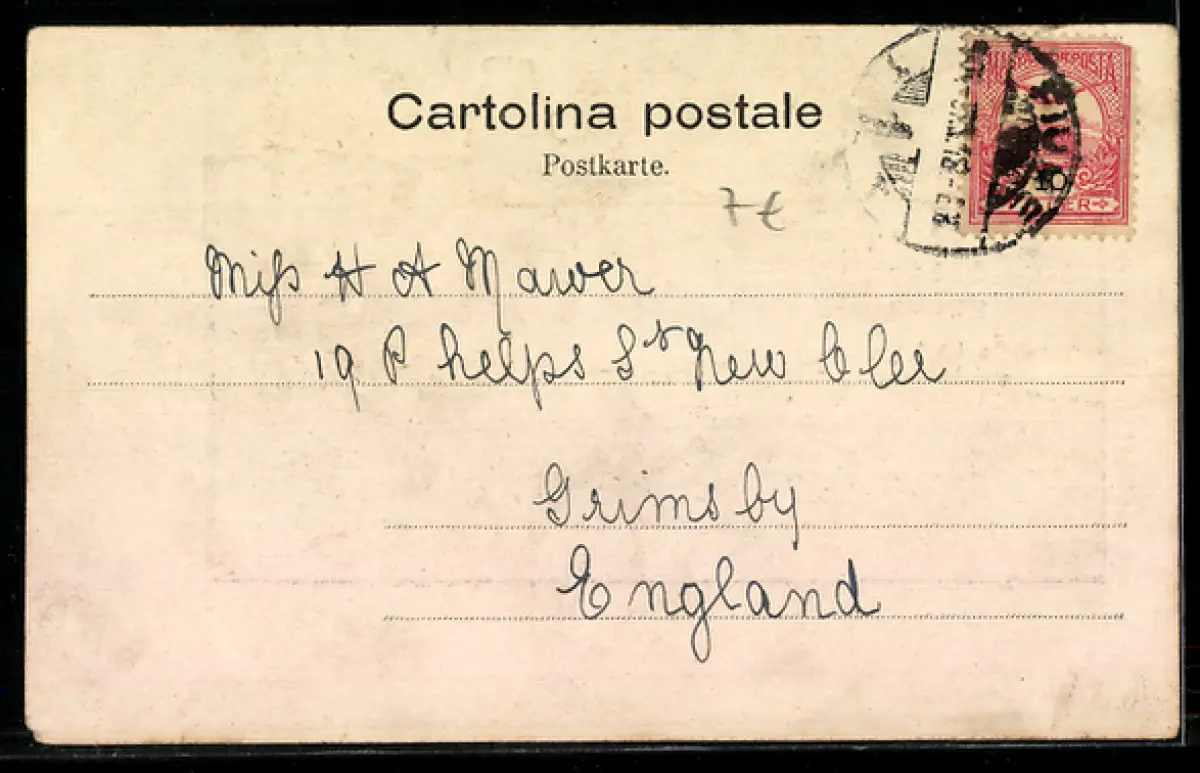 Cartolina postale
Postkarte.
7 €
Miss H A Mawer
19 Phelps St New Clee
Grimsby
England
10